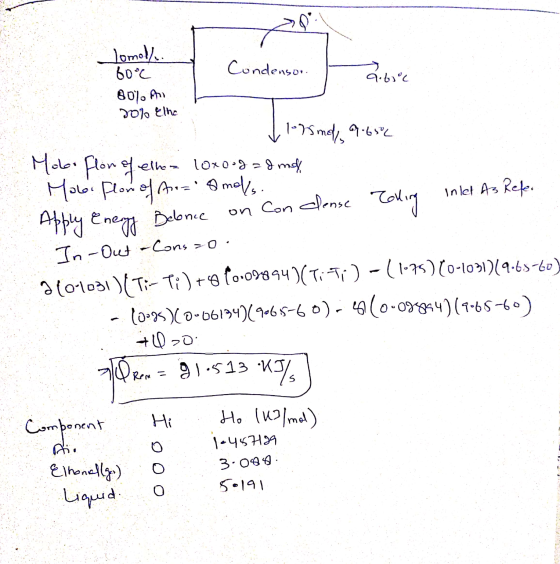 Q°.
10mol/s.
60°C
80% Air
20% Etha
Condensor.
9.65°C
1.75 mol/s, 9.65°C
Molar flow of etha = 10x0.2 = 2 mol/s
Molar Flow of Air = 8 mol/s.
Apply Energy Balance on Condense Taking inlet As Refe.
In - Out - Cons = 0.
2(0.1031)(Ti - Ti) + 8(0.02894)(Ti - Ti) - (1.75)(0.1031)(9.65-60)
- (0.25)(0.06134)(9.65-60) - 8(0.02894)(9.65-60)
+ Q = 0.
⇒ Q Rem = 21.513 KJ/s
Component Hi Ho (KJ/mol)
Air 0 1.457129
Ethanol(g) 0 3.088.
Liquid. 0 5.191